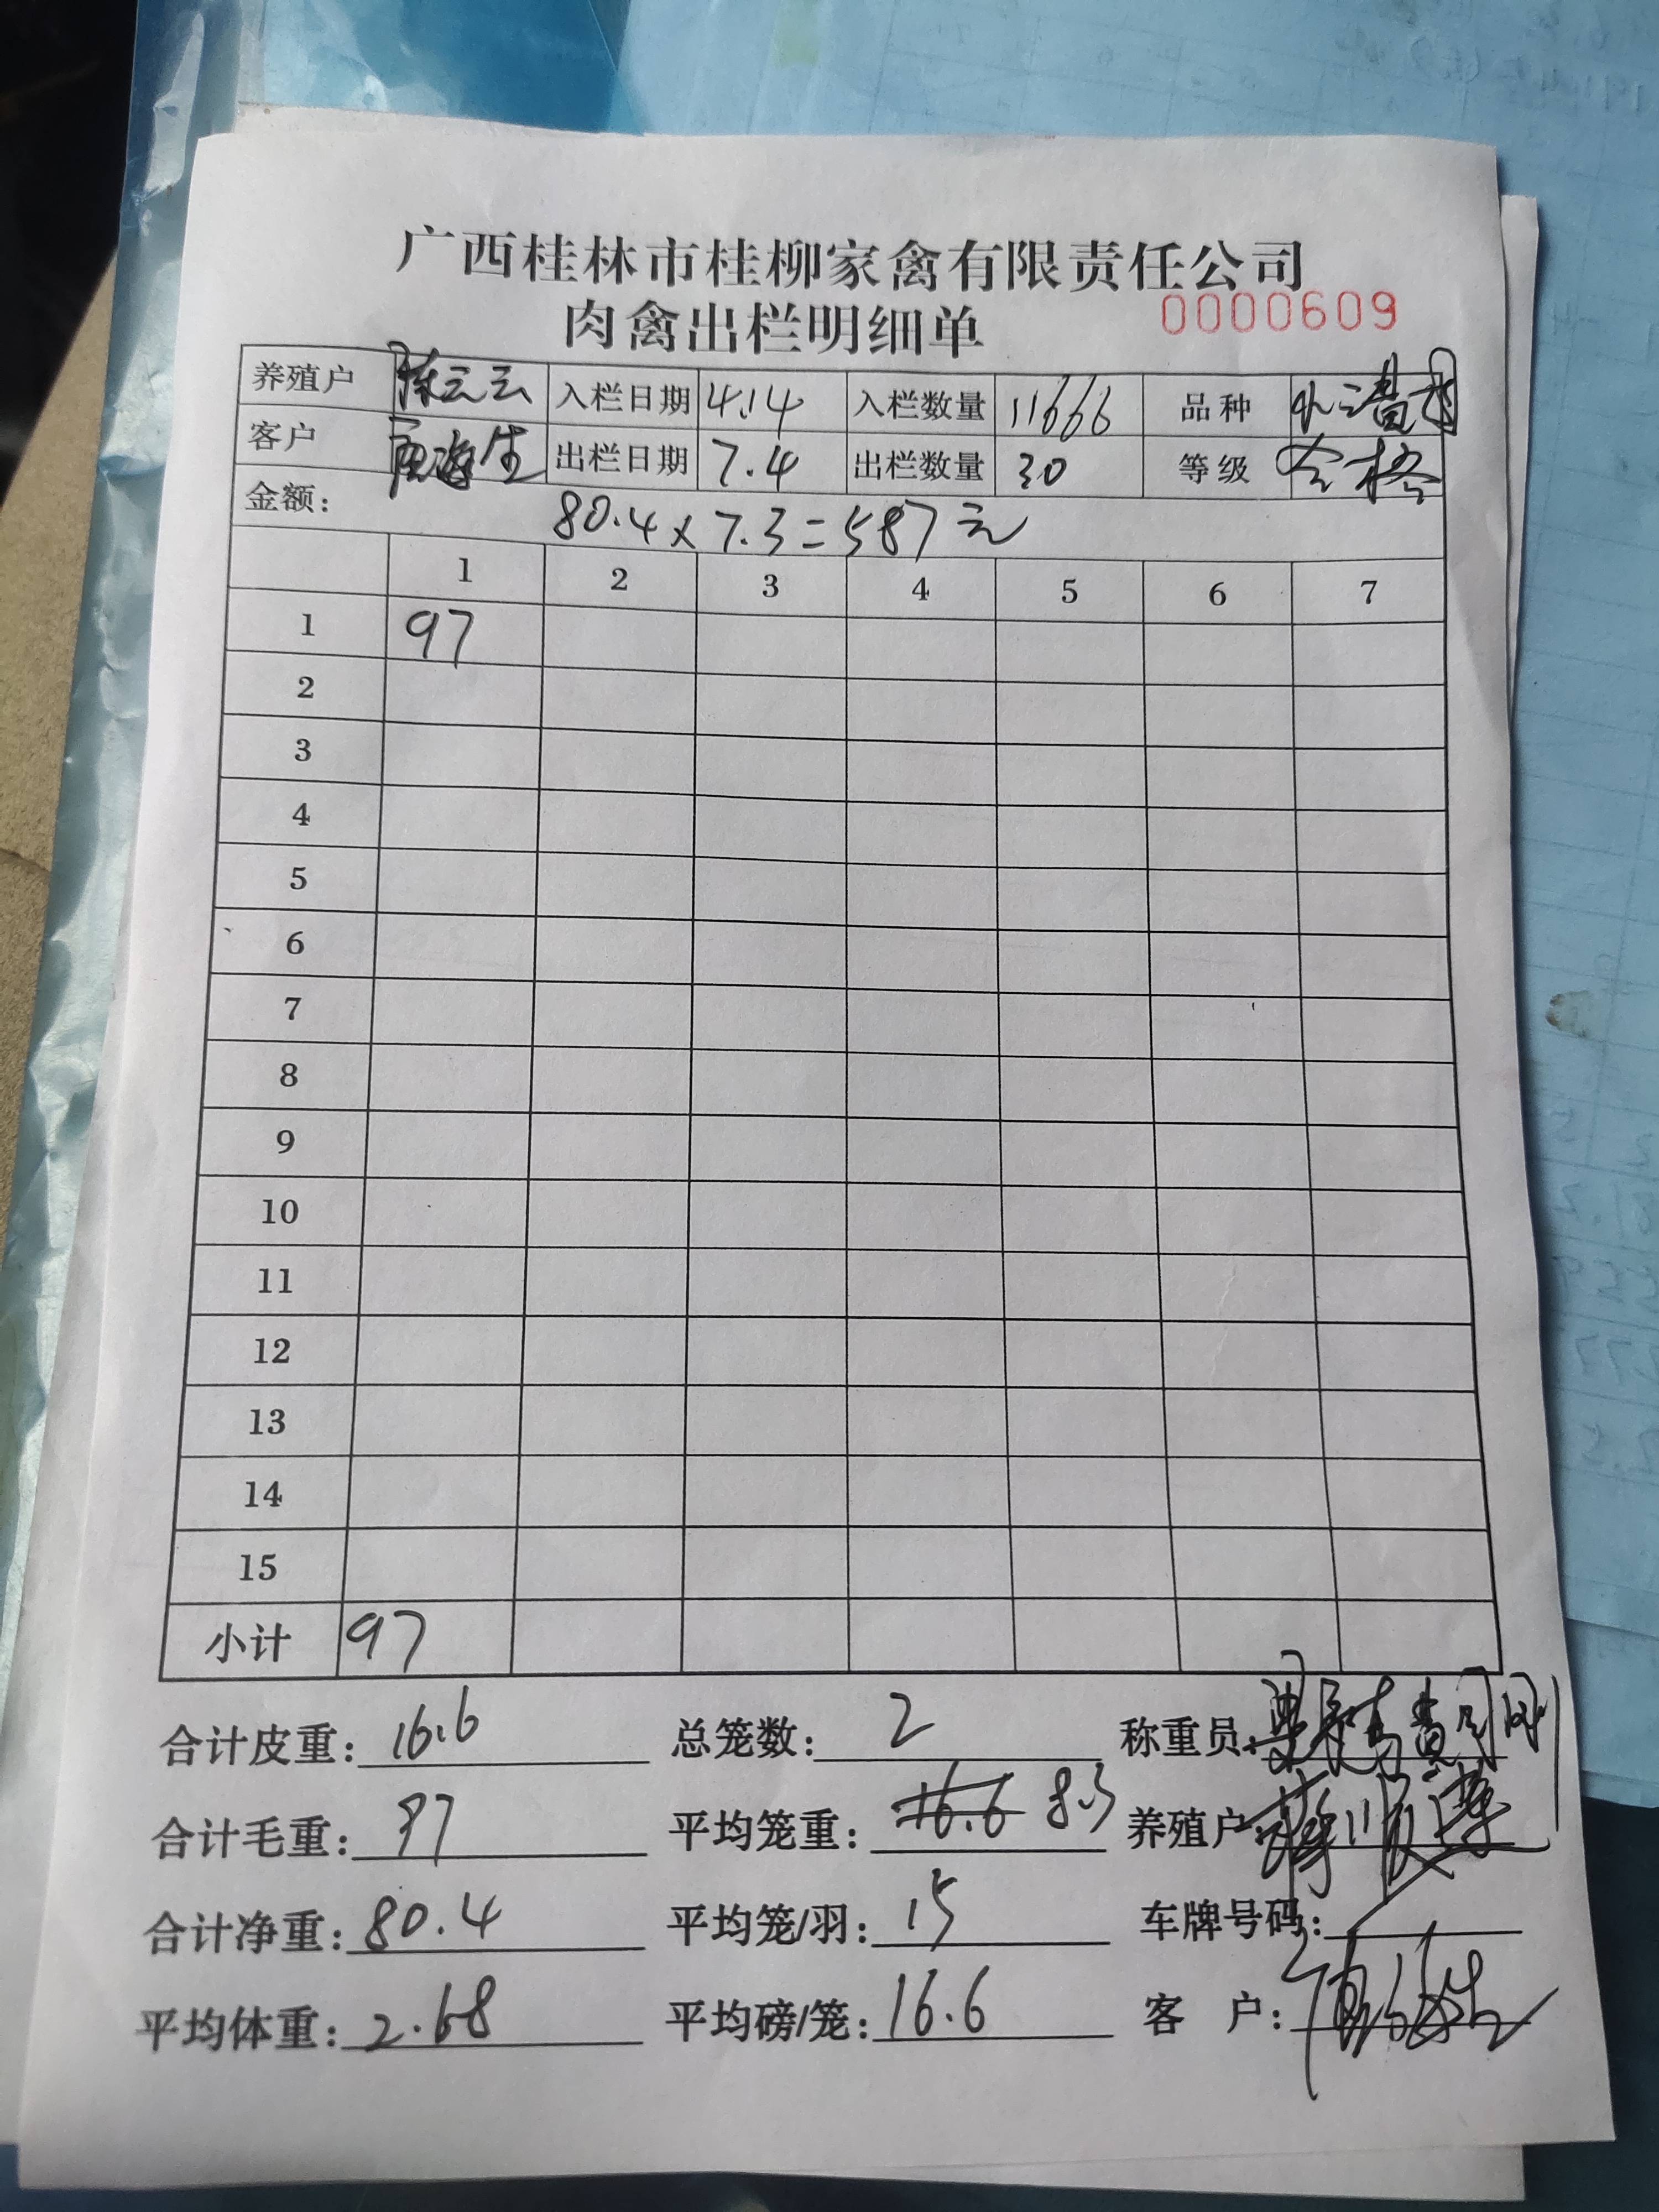 广西桂林市桂柳家禽有限责任公司
肉禽出栏明细单 0000609
养殖户 陈云云 入栏日期 4.14 入栏数量 11666 品种
客户 出栏日期 7.4 出栏数量 30 等级 合格
金额: 80.4×7.3=587元
1 2 3 4 5 6 7
1 97
2
3
4
5
6
7
8
9
10
11
12
13
14
15
小计 97
合计皮重: 16.6 总笼数: 2 称重员:
合计毛重: 97 平均笼重: 16.6 8.3 养殖户
合计净重: 80.4 平均笼/羽: 15 车牌号码: /
平均体重: 2.68 平均磅/笼: 16.6 客 户: